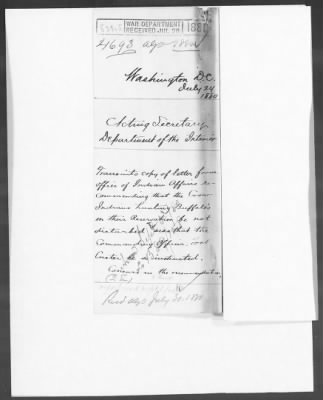 WAR DEPARTMENT
RECEIVED JUL 26
1880
4693 ago 1880
Washington D.C.
July 24
1880
Acting Secretary
Department of the Interior
Transmits copy of letter from
office of Indian Affairs re-
commending that the Crow
Indians hunting Buffalo
on their Reservation be not
disturbed and that the
Commanding Officer
Custer be so instructed.
Concurs in the
Recd ago July 30. 1880